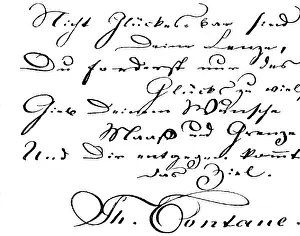 Nicht Glückes-bar sind
Deine Lenze,
Du forderst nur des
Glücks zu viel,
Gieb Deinem Wunsche
Maaß und Grenze
Und Dir entgegen kommt
das Ziel.
Th. Fontane.